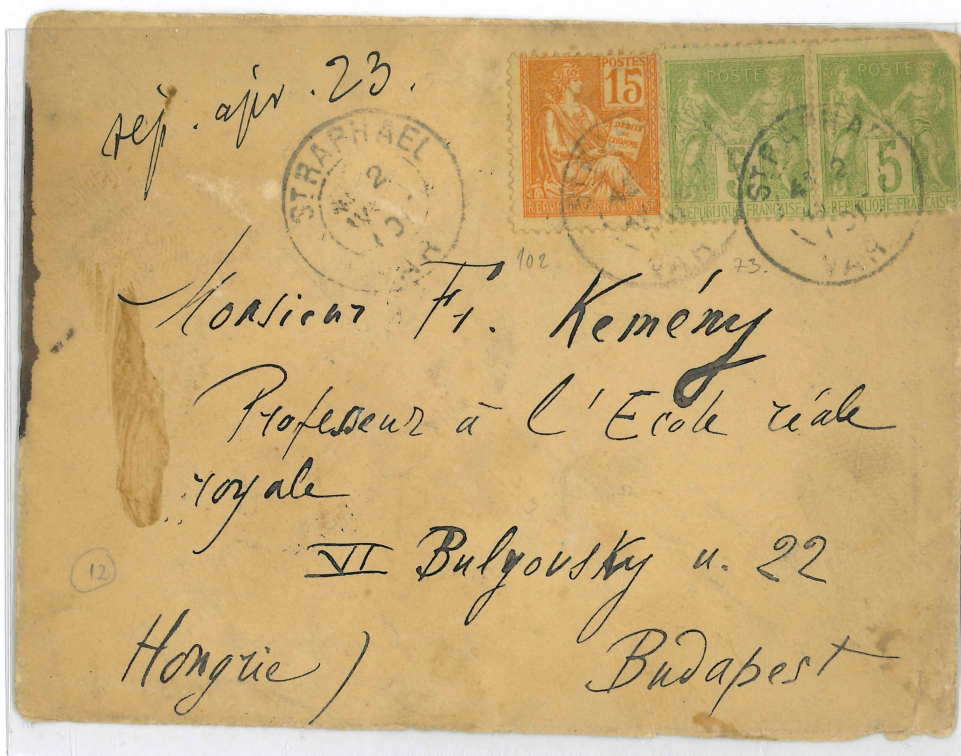 rép. apr. 23.
ST RAPHAEL
2
VAR
POSTES
15
DROITS DE L'HOMME
REPUBLIQUE FRANÇAISE
POSTE
5
REPUBLIQUE FRANÇAISE
POSTE
5
REPUBLIQUE FRANÇAISE
VAR
ST RAPHAEL
2
VAR
102
73.
Monsieur Fr. Kemény
Professeur à l'Ecole réale
royale
VI Bulyovsky u. 22
12
Hongrie) Budapest